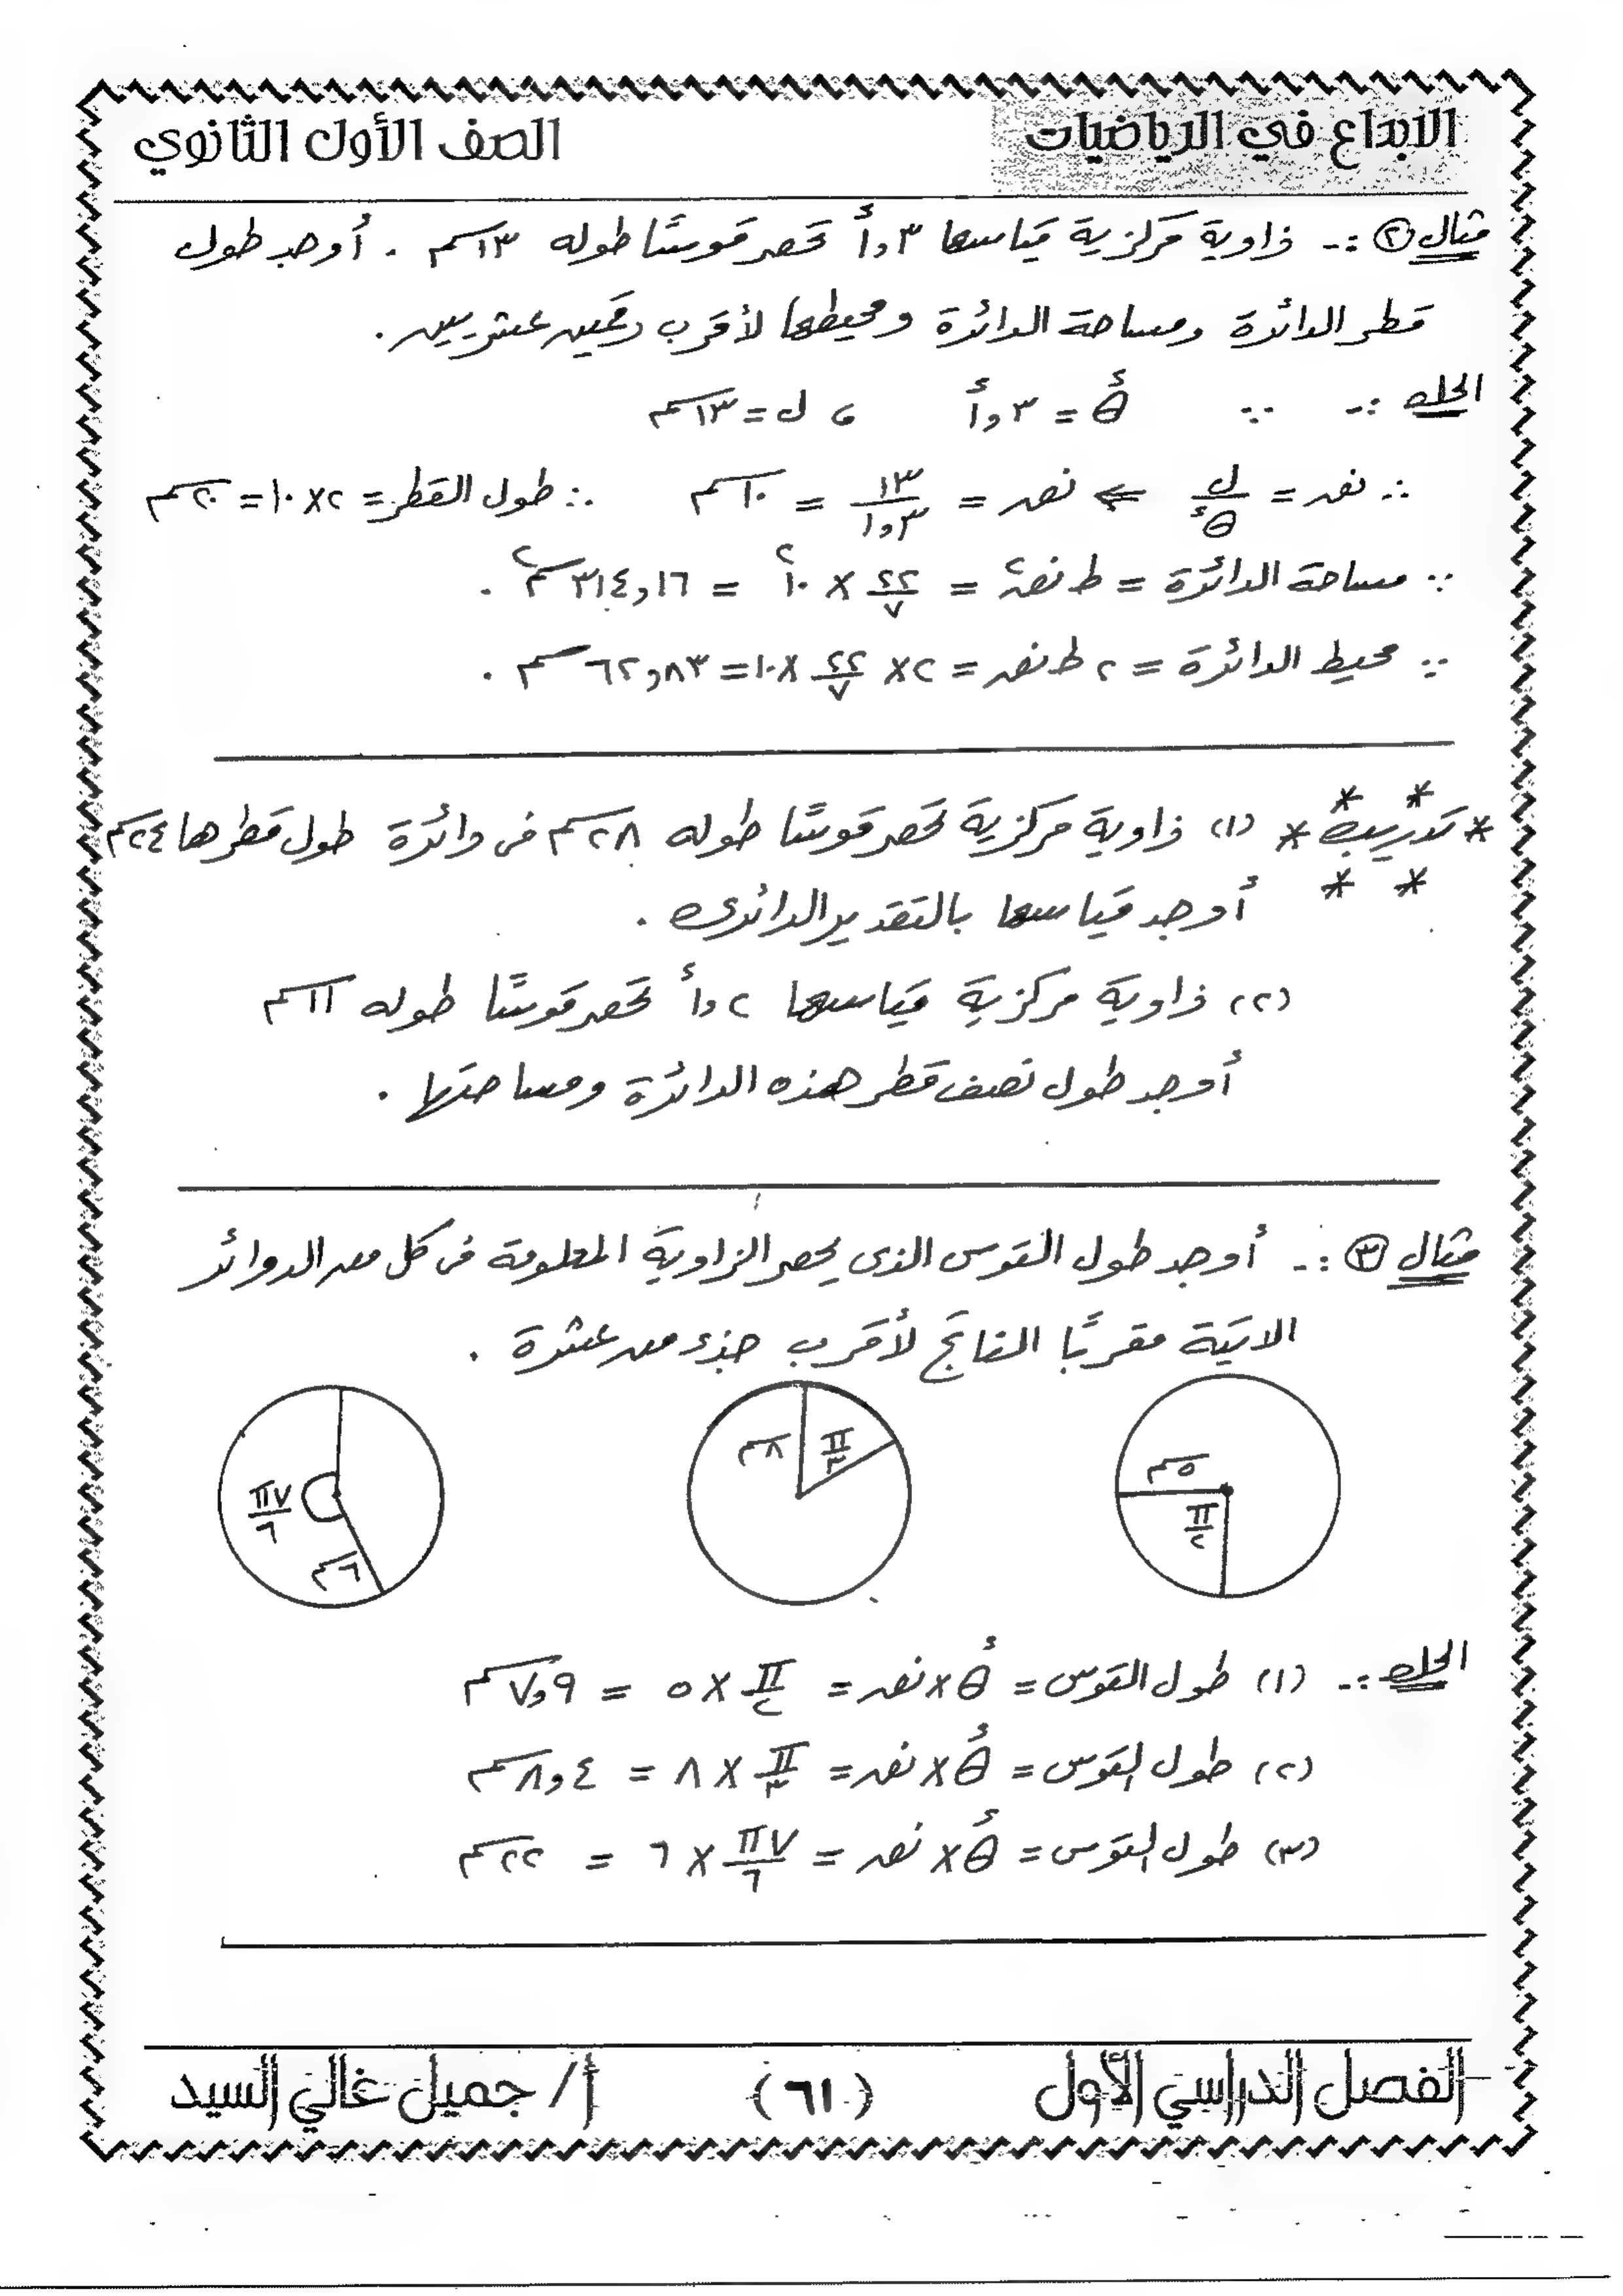 الابداع في الرياضيات
الصف الأول الثانوي
مثال (٢) :- زاوية مركزية قياسها ١,٣ᵈ تحصر قوسًا طوله ١٣ سم . أوجد طول
قطر الدائرة ومساحة الدائرة ومحيطها لأقرب رقمين عشريين .
الحل :- ∵ θᵈ = ١,٣ᵈ ، ل = ١٣ سم
∴ نق = ل/θᵈ ⇐ نق = ١٣/١,٣ = ١٠ سم ∴ طول القطر = ٢ × ١٠ = ٢٠ سم
∵ مساحة الدائرة = ط نق² = ٢٢/٧ × ١٠² = ٣١٤,١٦ سم² .
∵ محيط الدائرة = ٢ ط نق = ٢ × ٢٢/٧ × ١٠ = ٦٢,٨٣ سم .
* تدريب * (١) زاوية مركزية تحصر قوسًا طوله ٢٨ سم فى دائرة طول قطرها ٢٤ سم
أوجد قياسها بالتقدير الدائرى .
(٢) زاوية مركزية قياسها ١,٢ᵈ تحصر قوسًا طوله ١١ سم
أوجد طول نصف قطر هذه الدائرة ومساحتها .
مثال (٣) :- أوجد طول القوس الذى يحصر الزاوية المعلومة فى كل من الدوائر
الاتية مقربًا الناتج لأقرب جزء من عشرة .
٥ سم
π/٢
٨ سم
π/٣
٧π/٦
٦ سم
الحل :- (١) طول القوس = θᵈ × نق = π/٢ × ٥ = ٧,٩ سم
(٢) طول القوس = θᵈ × نق = π/٣ × ٨ = ٨,٤ سم
(٣) طول القوس = θᵈ × نق = ٧π/٦ × ٦ = ٢٢ سم
الفصل الدراسي الأول
( ٦١ )
أ/ جميل غالي السيد